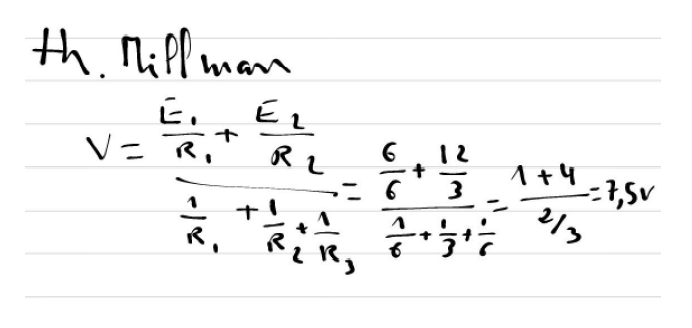 th. Millman
V = (E₁/R₁ + E₂/R₂) / (1/R₁ + 1/R₂ + 1/R₃) = (6/6 + 12/3) / (1/6 + 1/3 + 1/6) = (1+4) / (2/3) = 7,5V